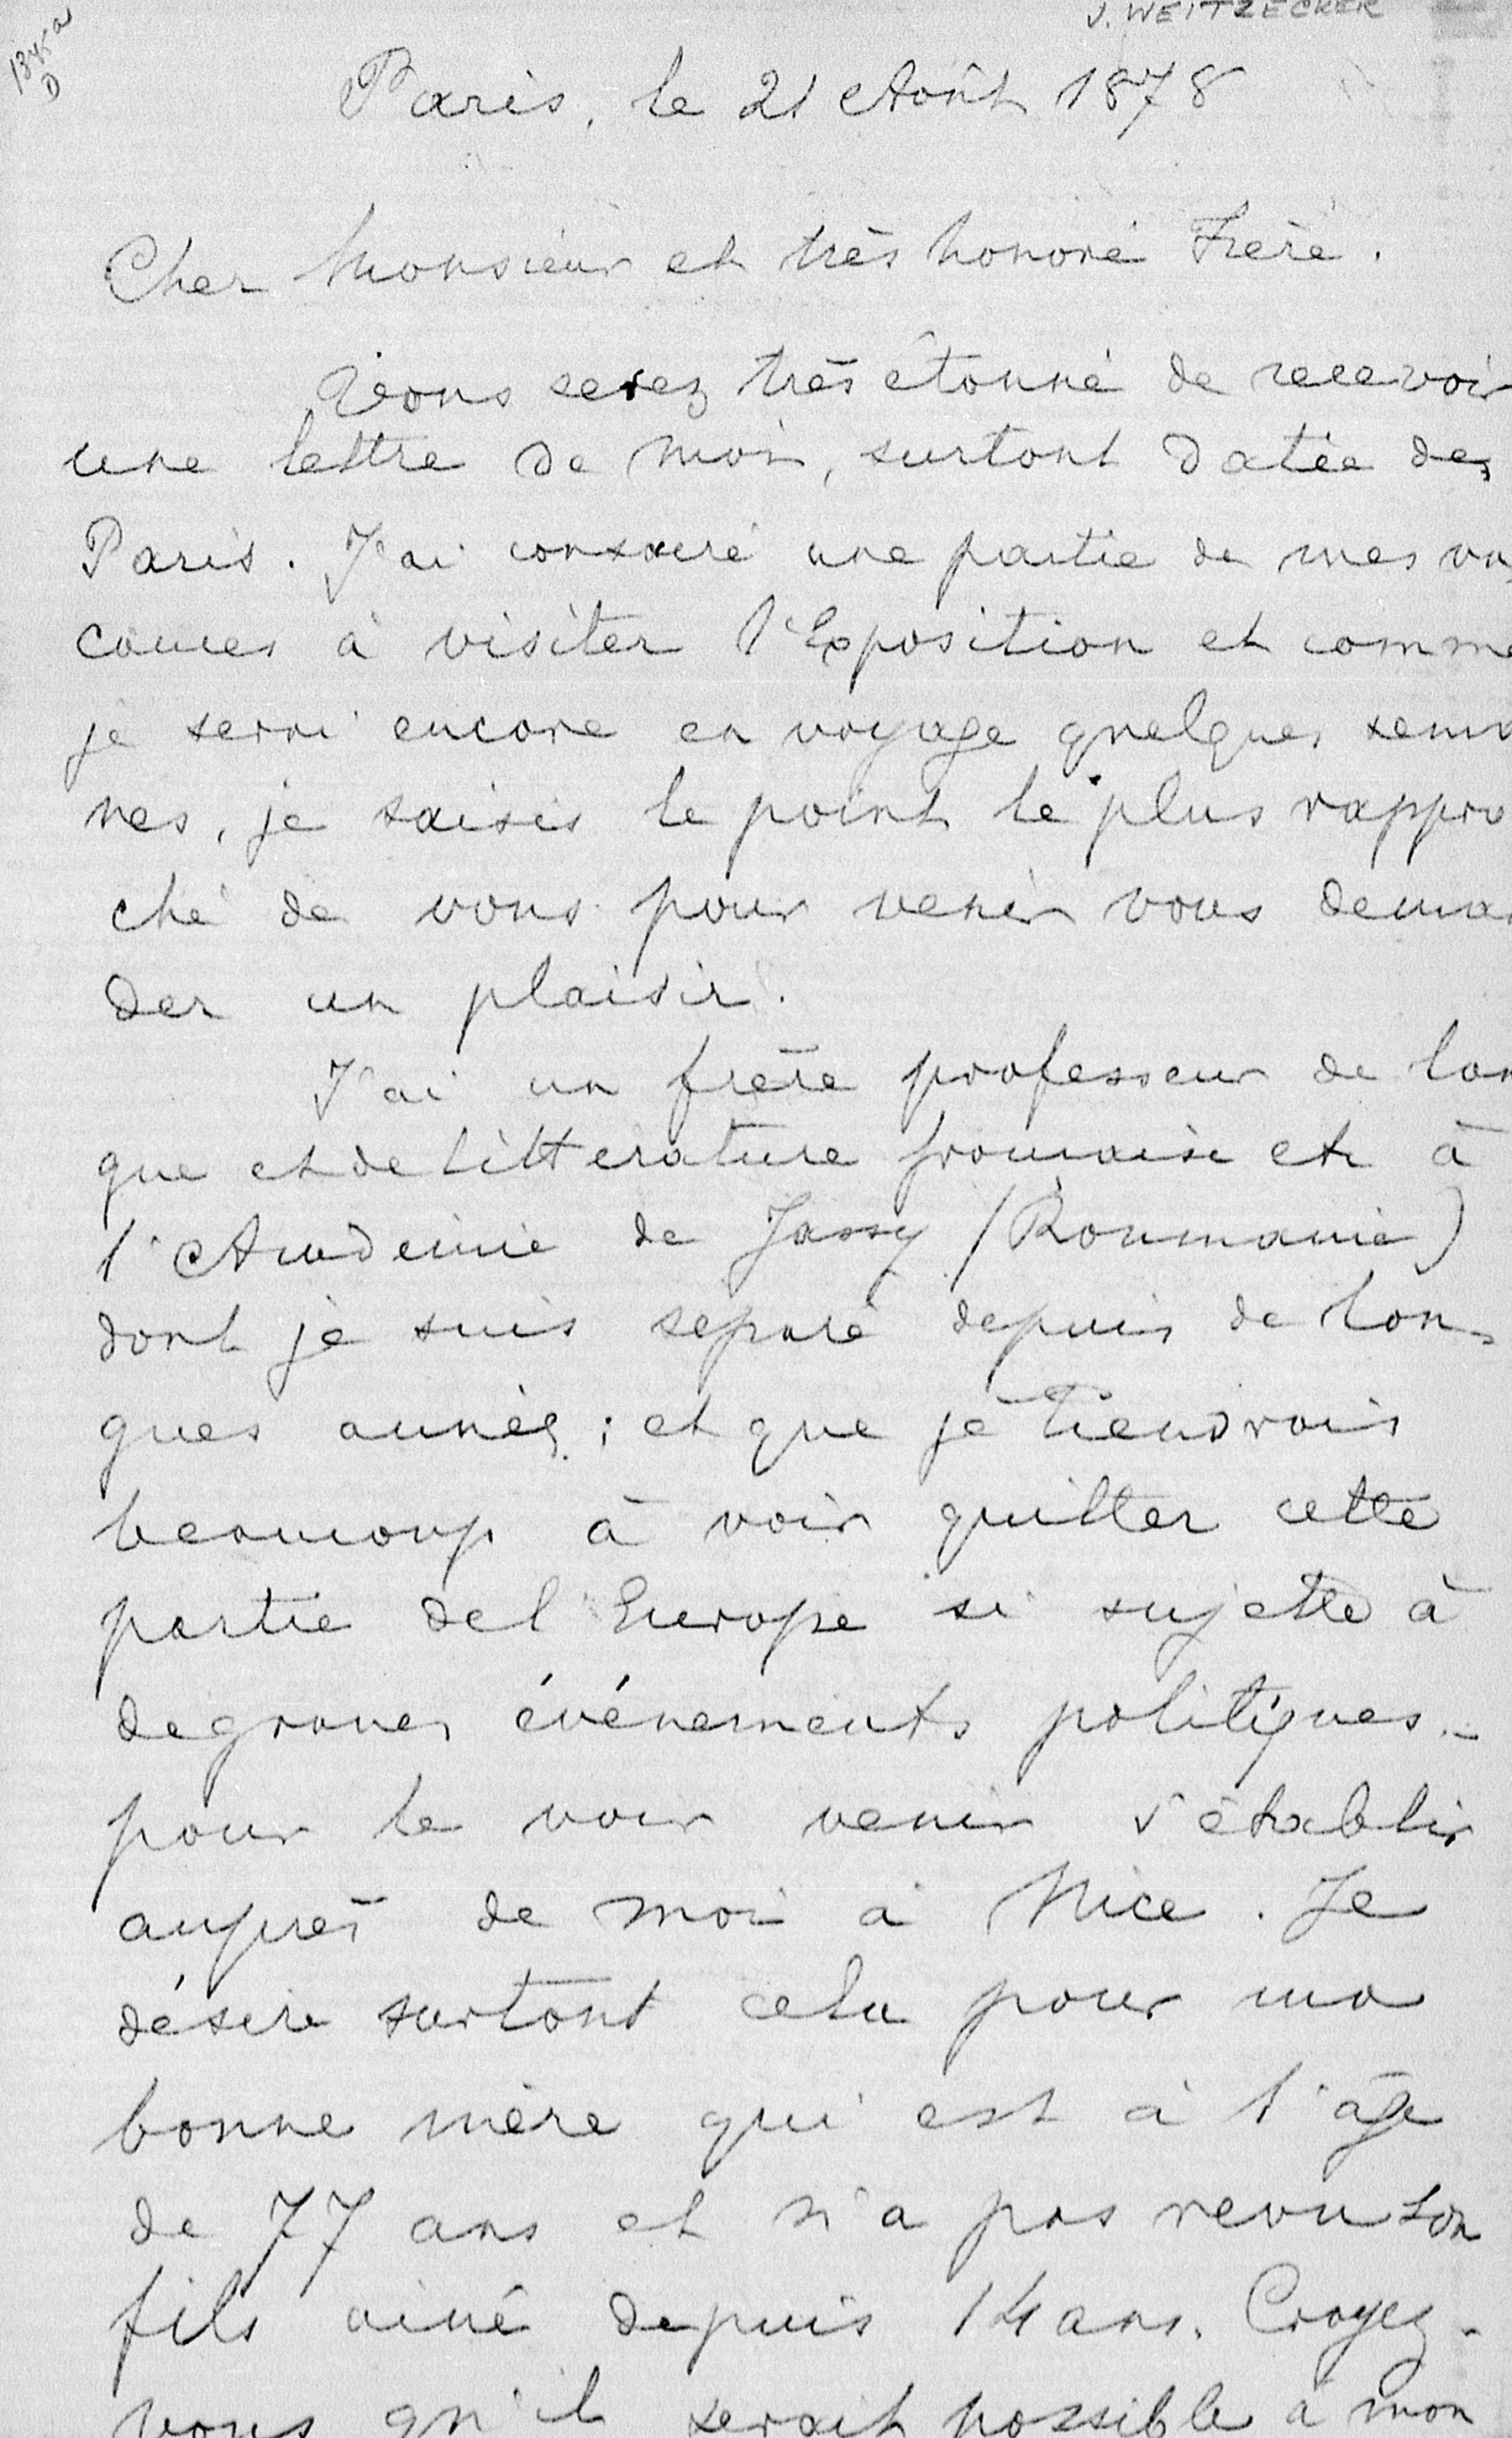 J. WEITZECKER
1845a
D
Paris, le 21 Août 1878
Cher Monsieur et très honoré Frère.
Vous serez très étonné de recevoir
une lettre de moi, surtout datée de
Paris. J'ai consacré une partie de mes va
cances à visiter l'Exposition et comme
je serai encore en voyage quelques semai
nes, je saisis le point le plus rappro
ché de vous pour venir vous deman
der un plaisir.
J'ai un frère professeur de lan
gue et de littérature française et à
l'Académie de Jassy (Roumanie)
dont je suis séparé depuis de lon-
gues années; et que je tiendrais
beaucoup à voir quitter cette
partie de l'Europe si sujette à
de graves événements politiques -
pour le voir venir s'établir
auprès de moi à Nice. Je
désire surtout cela pour ma
bonne mère qui est à l'âge
de 77 ans et n'a pas revu son
fils ainé depuis 14 ans. Croyez-
vous qu'il serait possible à mon